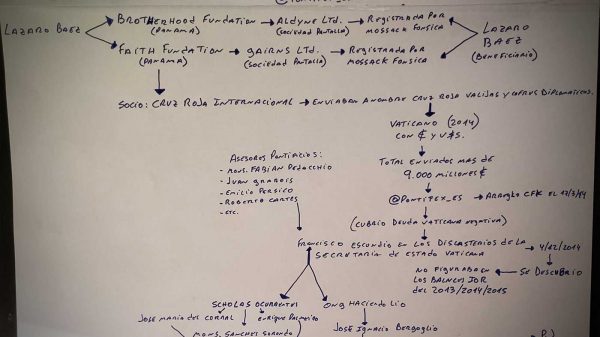 @PONTIFEX_ES
LAZARO BAEZ
BROTHERHOOD FUNDATION
(PANAMA)
ALDYNE LTD.
(SOCIEDAD PANTALLA)
REGISTRADA POR
MOSSACK FONSICA
LAZARO
BAEZ
(BENEFICIARIO)
FAITH FUNDATION
(PANAMA)
GAIRNS LTD.
(SOCIEDAD PANTALLA)
REGISTRADA POR
MOSSACK FONSICA
SOCIO: CRUZ ROJA INTERNACIONAL
ENVIABAN A NOMBRE CRUZ ROJA VALIJAS Y COFRES DIPLOMATICOS.
VATICANO (2014)
CON € Y U$S.
TOTAL ENVIADOS MAS DE
9.000 MILLONES €
ASESORES PONTIFICIOS:
- MONS. FABIAN PEDACCHIO
- JUAN GRABOIS
- EMILIO PERSICO
- ROBERTO CARLES
- ETC.
@PONTIFEX_ES
ARREGLO CFK EL
(CUBRIO DEUDA VATICANA NEGATIVA)
FRANCISCO ESCONDIO EN LOS DICASTERIOS DE LA
SECRETARIA DE ESTADO VATICANA
4/12/2014
SE DESCUBRIO
NO FIGURABA EN
LOS BALNCES IOR
DEL 2013/2014/2015
SCHOLAS OCURRENTES
ONG HACIENDO LIO
JOSE MARIA DEL CORRAL
ENRIQUE PALMEYRO
MONS. SANCHES SORONDO
JOSE IGNACIO BERGOGLIO